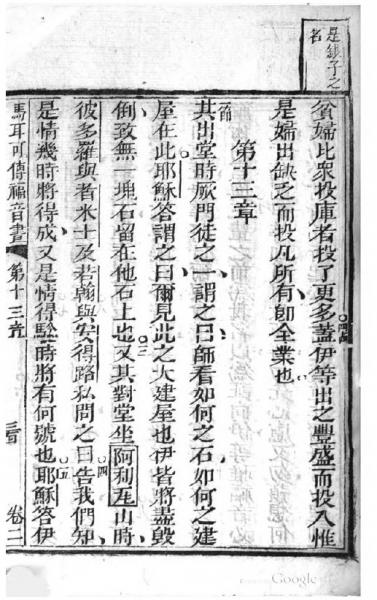 是銀子之
名
貧婦比衆投庫者投了更多蓋伊等出之豐盛而投入惟
是婦出缺乏而投凡所有卽全業也
第十三章
其出堂時厥門徒之一謂之曰師看如何之石如何之建
屋在此耶穌答謂之曰爾見此之大建屋也伊皆將盡毀
倒致無一塊石留在他石上也三又其對堂坐阿利瓦山時
彼多羅與者米士及若翰與安得路私問之曰四告我們知
是情幾時將得成又是情得驗時將有何號也五耶穌答伊
馬耳可傳福音書 第十三章 卷二
Google